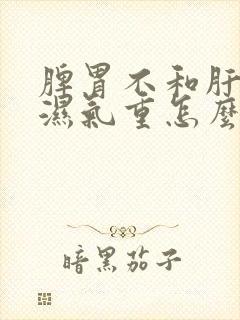 脾胃不和肝
濕氣重怎麼
暗黑茄子